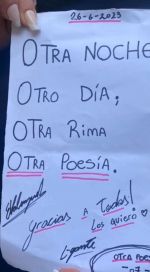 26-6-2023
OTRA NOCHE
OTRO DÍA;
OTRA RIMA
OTRA POESÍA.
Gracias A Todos!
Los quiero ♡
OTRA POES